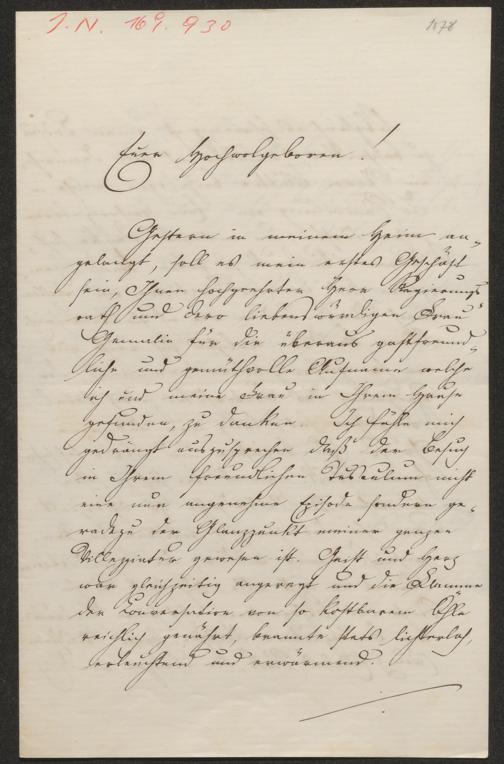 I.N. 169.930
1878
Euer Hochwolgeboren!
Gestern in meinem Heim an-
gelangt, soll es mein erstes Geschäft
sein, Ihnen hochgeehrter Herr Regierungs
rath und dero liebenswürdigen Frau
Gemalin für die überaus gastfreund-
liche und gemüthvolle Aufname welche
ich und meine Frau in Ihrem Hause
gefunden, zu danken. Ich fühle mich
gedrängt auszusprechen daß der Besuch
in Ihrem freundlichen Tusculum nicht
eine nur angenehme Episode sondern ge-
radezu der Glanzpunkt meiner ganzen
Villegiatur gewesen ist. Geist und Herz
war gleichzeitig angeregt und die Flamme
der Conversation von so kostbarem Öhle
reichlich genährt, brannte stets lichterloh,
erleuchtend und erwärmend.